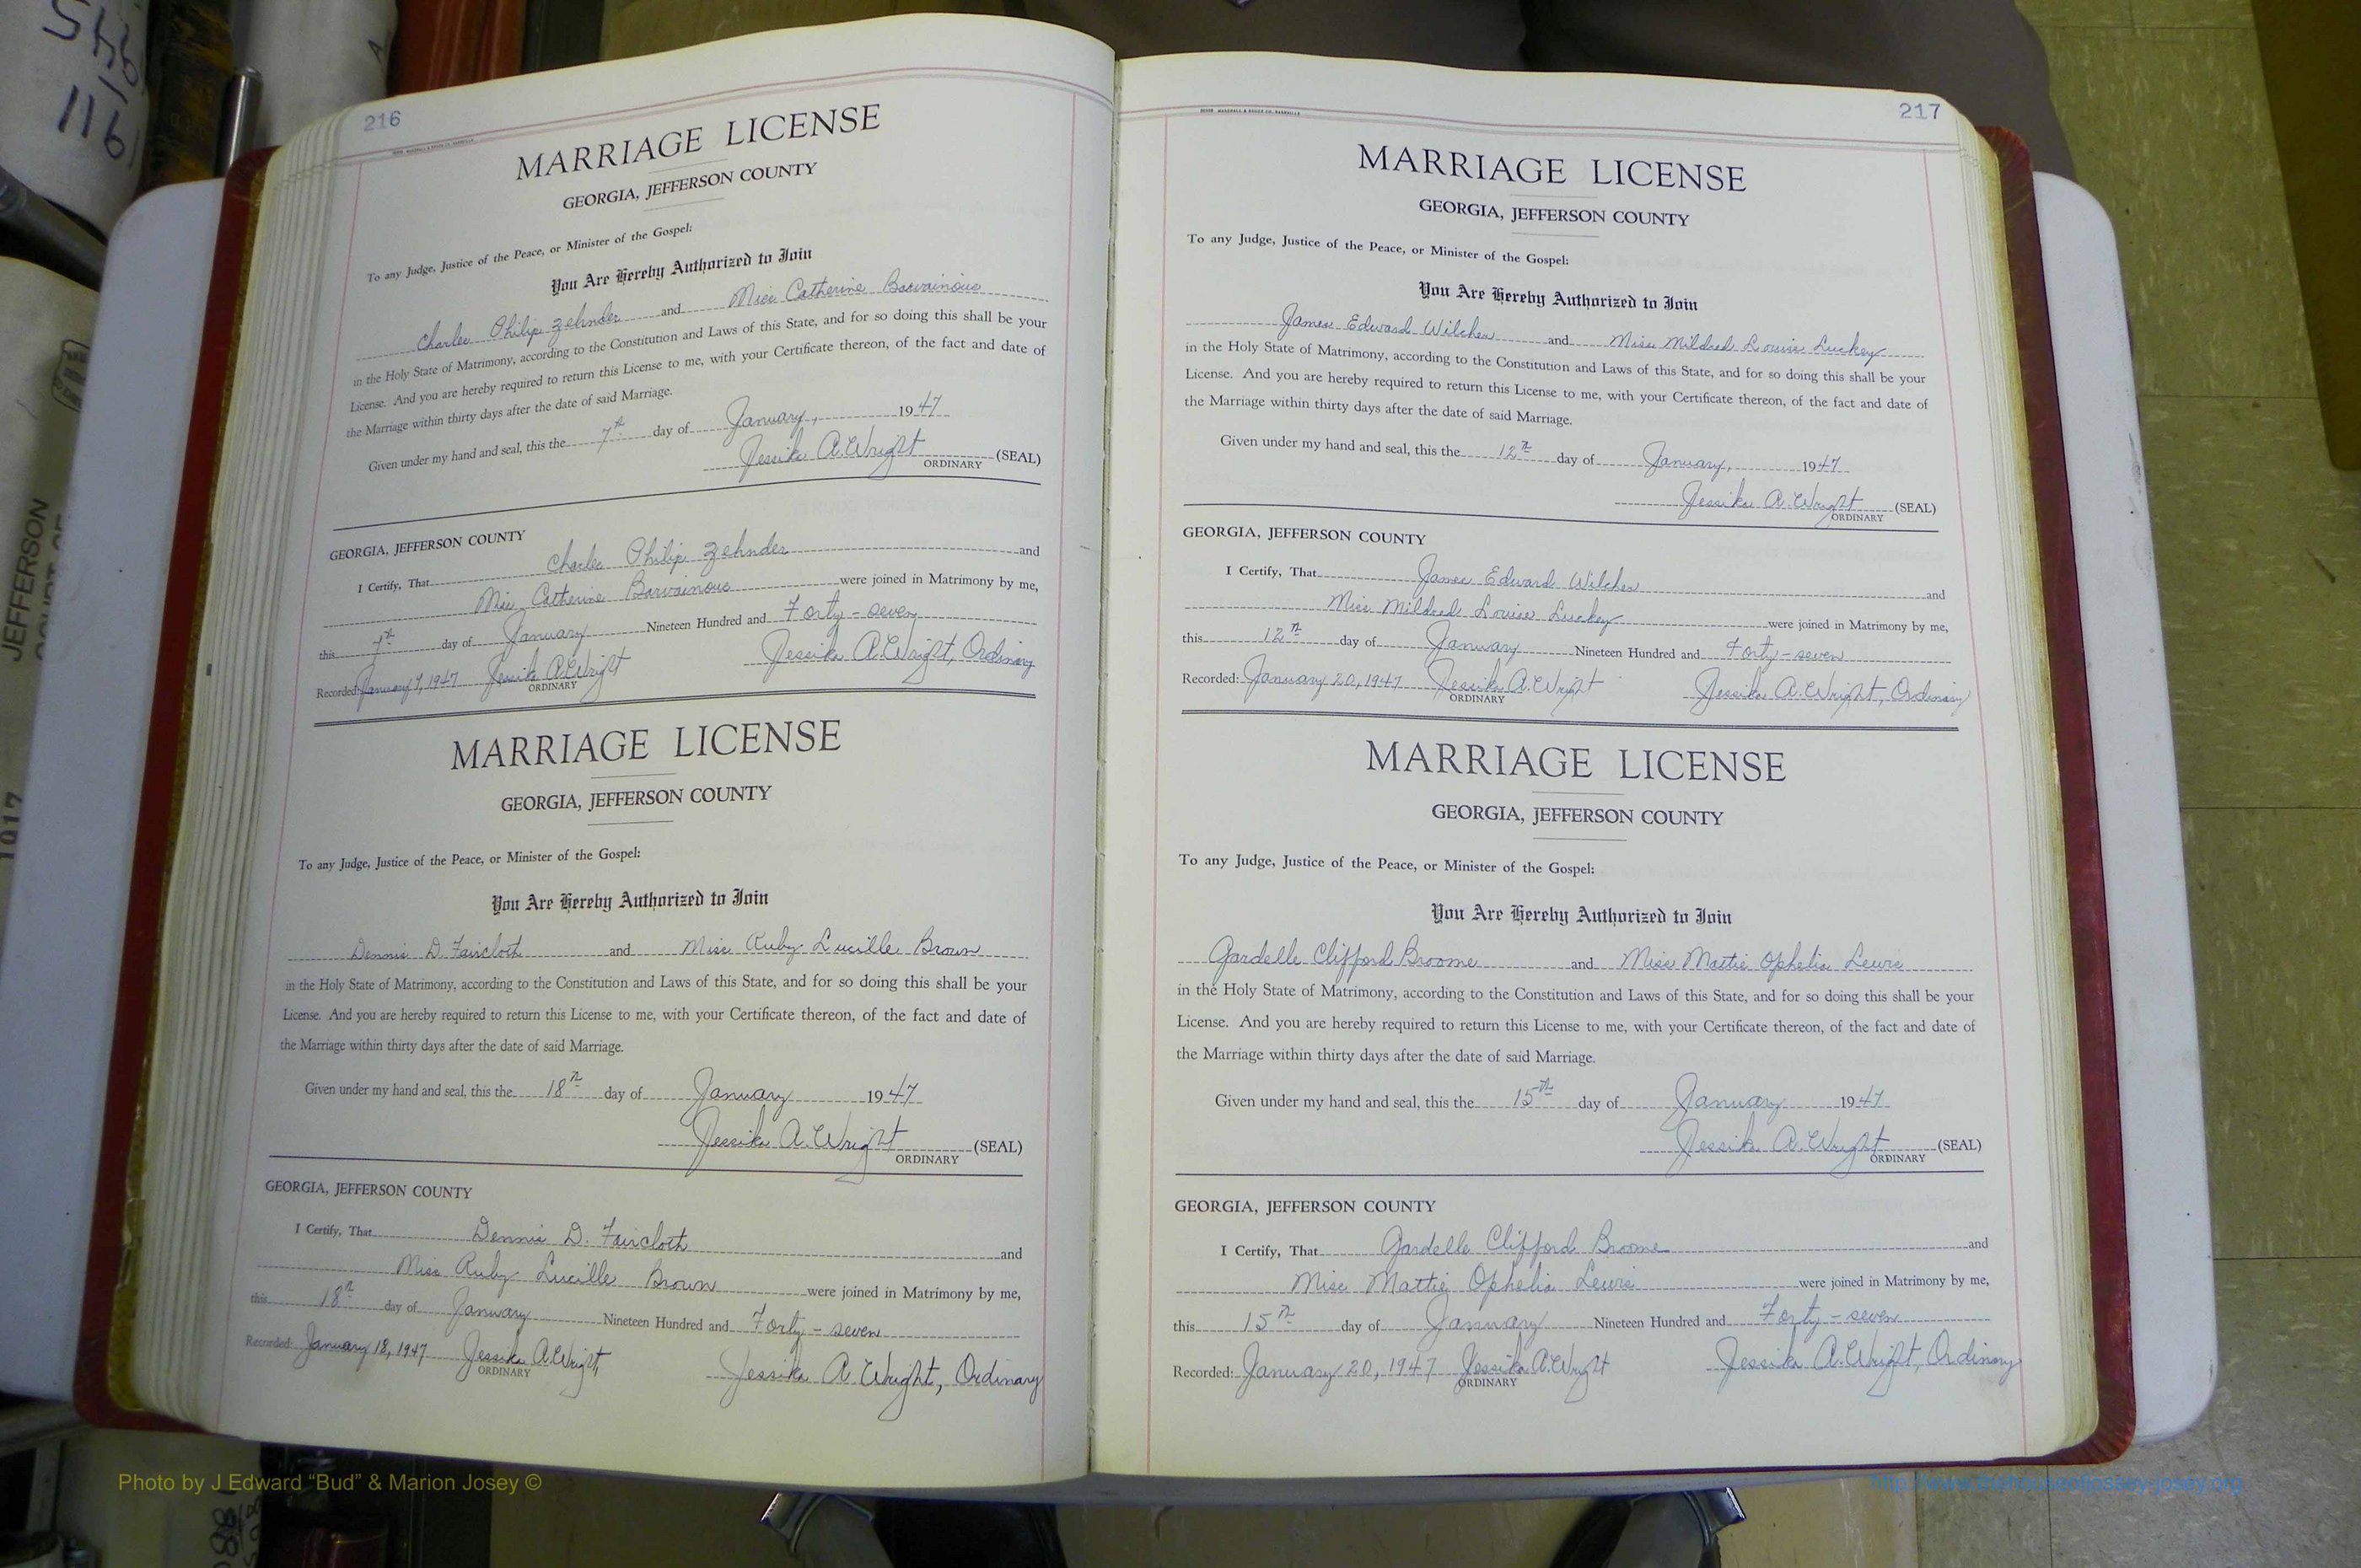 216
MARRIAGE LICENSE
GEORGIA, JEFFERSON COUNTY
To any Judge, Justice of the Peace, or Minister of the Gospel:
You Are Hereby Authorized to Join
Charles Philip Zehnder and Miss Catherine Barvainous
in the Holy State of Matrimony, according to the Constitution and Laws of this State, and for so doing this shall be your
License. And you are hereby required to return this License to me, with your Certificate thereon, of the fact and date of
the Marriage within thirty days after the date of said Marriage.
Given under my hand and seal, this the 7th day of January, 1947
Jessika A. Wright (SEAL)
ORDINARY
GEORGIA, JEFFERSON COUNTY
I Certify, That Charles Philip Zehnder and
Miss Catherine Barvainous were joined in Matrimony by me,
this 7th day of January Nineteen Hundred and Forty-seven
Recorded: January 7, 1947 Jessika A. Wright Jessika A. Wright, Ordinary
ORDINARY
MARRIAGE LICENSE
GEORGIA, JEFFERSON COUNTY
To any Judge, Justice of the Peace, or Minister of the Gospel:
You Are Hereby Authorized to Join
Dennis D. Faircloth and Miss Ruby Lucille Brown
in the Holy State of Matrimony, according to the Constitution and Laws of this State, and for so doing this shall be your
License. And you are hereby required to return this License to me, with your Certificate thereon, of the fact and date of
the Marriage within thirty days after the date of said Marriage.
Given under my hand and seal, this the 18th day of January 1947
Jessika A. Wright (SEAL)
ORDINARY
GEORGIA, JEFFERSON COUNTY
I Certify, That Dennis D. Faircloth and
Miss Ruby Lucille Brown were joined in Matrimony by me,
this 18th day of January Nineteen Hundred and Forty-seven
Recorded: January 18, 1947 Jessika A. Wright Jessika A. Wright, Ordinary
ORDINARY
217
MARRIAGE LICENSE
GEORGIA, JEFFERSON COUNTY
To any Judge, Justice of the Peace, or Minister of the Gospel:
You Are Hereby Authorized to Join
James Edward Wilcher and Miss Mildred Louise Luckey
in the Holy State of Matrimony, according to the Constitution and Laws of this State, and for so doing this shall be your
License. And you are hereby required to return this License to me, with your Certificate thereon, of the fact and date of
the Marriage within thirty days after the date of said Marriage.
Given under my hand and seal, this the 12th day of January, 1947
Jessika A. Wright (SEAL)
ORDINARY
GEORGIA, JEFFERSON COUNTY
I Certify, That James Edward Wilcher and
Miss Mildred Louise Luckey were joined in Matrimony by me,
this 12th day of January Nineteen Hundred and Forty-seven
Recorded: January 20, 1947 Jessika A. Wright Jessika A. Wright, Ordinary
ORDINARY
MARRIAGE LICENSE
GEORGIA, JEFFERSON COUNTY
To any Judge, Justice of the Peace, or Minister of the Gospel:
You Are Hereby Authorized to Join
Gardelle Clifford Broome and Miss Mattie Ophelia Lewis
in the Holy State of Matrimony, according to the Constitution and Laws of this State, and for so doing this shall be your
License. And you are hereby required to return this License to me, with your Certificate thereon, of the fact and date of
the Marriage within thirty days after the date of said Marriage.
Given under my hand and seal, this the 15th day of January 1947
Jessika A. Wright (SEAL)
ORDINARY
GEORGIA, JEFFERSON COUNTY
I Certify, That Gardelle Clifford Broome and
Miss Mattie Ophelia Lewis were joined in Matrimony by me,
this 15th day of January Nineteen Hundred and Forty-seven
Recorded: January 20, 1947 Jessika A. Wright Jessika A. Wright, Ordinary
ORDINARY
JEFFERSON
1917
116
Photo by J Edward “Bud” & Marion Josey ©
http://www.thehouseofjosey-josey.org